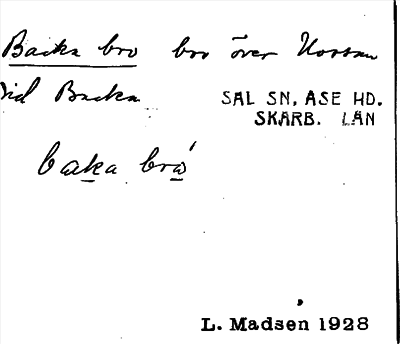 Backa bro bro över Nossan
vid Backa
SAL SN, ÅSE HD.
SKARB. LÄN
baka bro
L. Madsen 1928